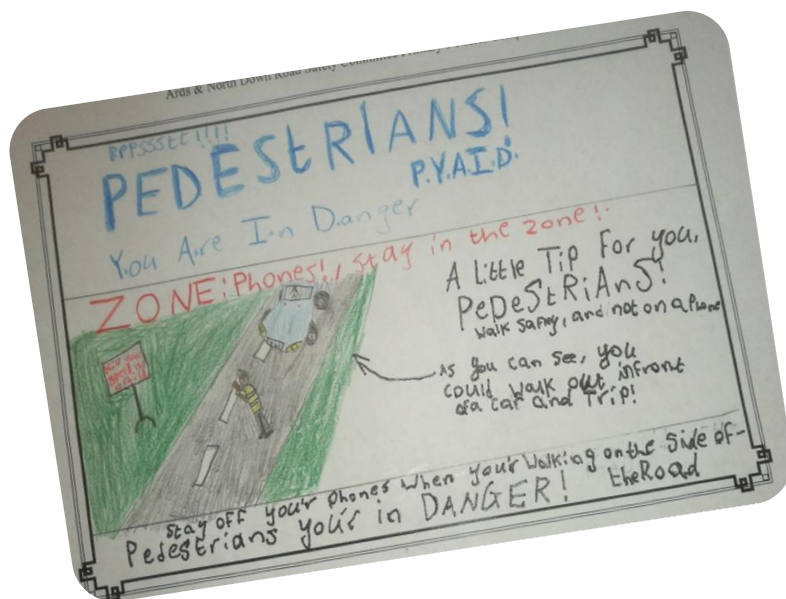 Ards & North Down Road Safety Committee
PEDEStRIANS!
P.Y.A.I.D.
You Are In Danger
ZONE! Phones!, stay in the zone!
A Little Tip For you,
PeDeStRiAnS!
walk safley, and not on a Phone
As you can see, you
could walk out infront
of a car and Trip!
Stay off you'r phones when your walking on the side of-
the Road
Pedestrians you'r in DANGER!